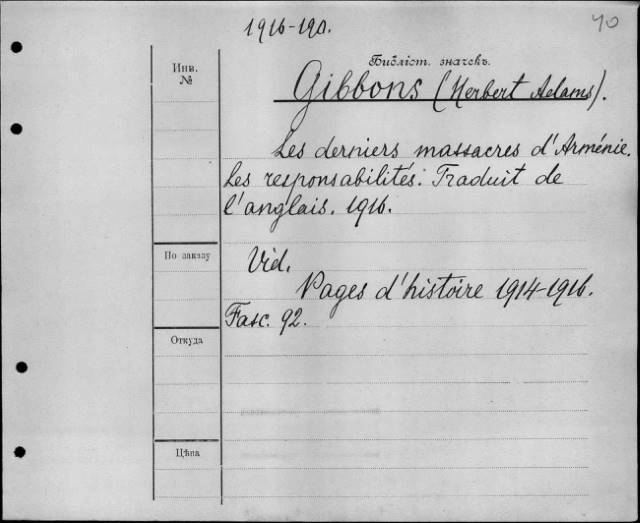 1916-190.
40
Библіот. значекъ.
Инв.
№
Gibbons (Herbert Adams).
Les derniers massacres d'Arménie.
Les responsabilités. Traduit de
l'anglais. 1916.
По заказу
Vid.
Pages d'histoire 1914-1916.
Fasc. 92.
Откуда
Цѣна